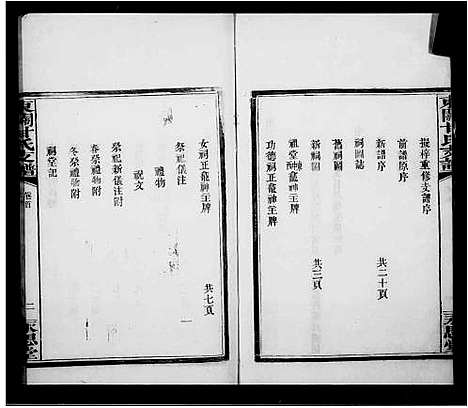 振梓重修支譜序
前譜原序
新譜序
共二十頁
祠圖誌
舊祠圖
新祠圖
共三頁
祖堂龕神主牌
功德祠正龕神主牌
女祠正龕神主牌
共七頁
祭祀新儀注
禮物
祝文
祭祀新儀注
春祭禮物附
冬祭禮物附
祠堂記
甘氏支譜
卷首
永思堂